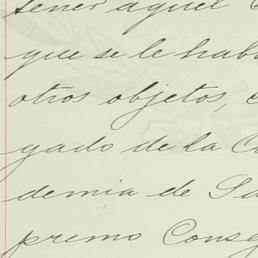 tener aquel
que se le hab
otros objetos,
gado de la
demia de
premo Conse